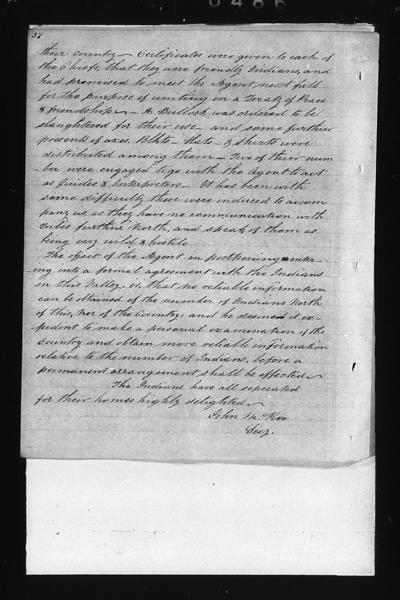 0466
37
their country — Certificates were given to each of
the Chiefs, that they were friendly Indians, and
had promised to meet the Agent next fall
for the purpose of uniting in a Treaty of Peace
& friendship — A Bullock was ordered to be
slaughtered for their use — and some further
presents of axes Blkts — Hats — & shirts were
distributed among them — Two of thier num
ber were engaged to go with the Agent to act
as Guides & Interpreters — It has been with
some difficulty these were induced to accom
pany us, as they have no communication with
tribes further North, and speak of them as
being very wild & hostile
The object of the Agent in postponing enter-
ing into a formal agreement with the Indians
in this Valley - is, that no reliable information
can be obtained of the number of Indians North
of this, nor of the Country; and he deemed it ex-
pedient to make a personal examination of the
Country and obtain more reliable information
relative to the number of Indians, before a
permanent arrangement shall be effected
The Indians have all seperated
for their homes highly delighted
John McKee
Secy.